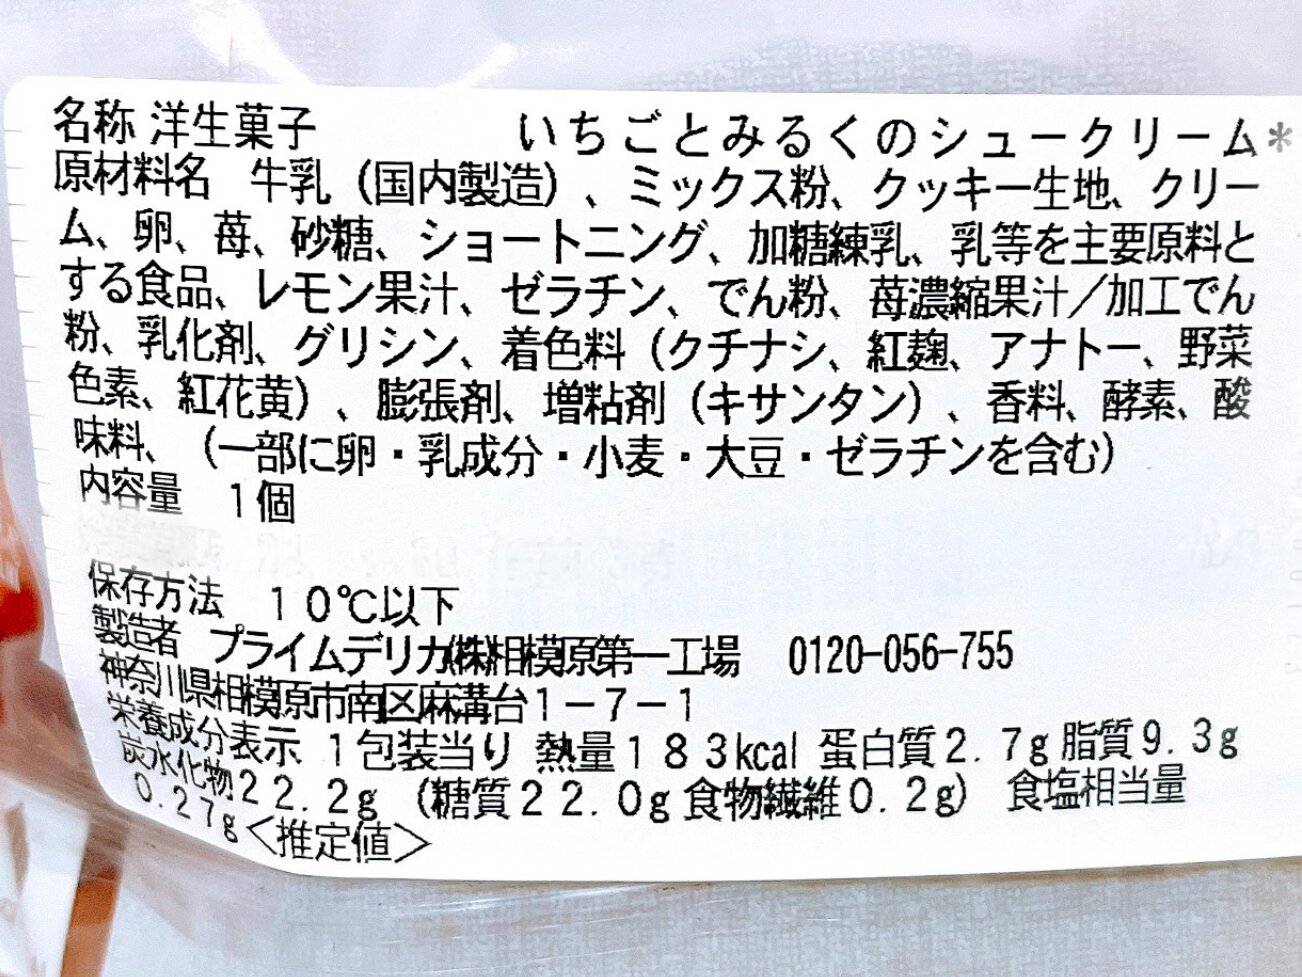 名称 洋生菓子 いちごとみるくのシュークリーム*
原材料名 牛乳（国内製造）、ミックス粉、クッキー生地、クリー
ム、卵、苺、砂糖、ショートニング、加糖練乳、乳等を主要原料と
する食品、レモン果汁、ゼラチン、でん粉、苺濃縮果汁／加工でん
粉、乳化剤、グリシン、着色料（クチナシ、紅麹、アナトー、野菜
色素、紅花黄）、膨張剤、増粘剤（キサンタン）、香料、酵素、酸
味料、（一部に卵・乳成分・小麦・大豆・ゼラチンを含む）
内容量 １個
保存方法 １０℃以下
製造者 プライムデリカ㈱相模原第一工場 0120-056-755
神奈川県相模原市南区麻溝台１－７－１
栄養成分表示 １包装当り 熱量１８３kcal 蛋白質２．７g 脂質９．３g
炭水化物２２．２g （糖質２２．０g 食物繊維０．２g） 食塩相当量
０．２７g＜推定値＞